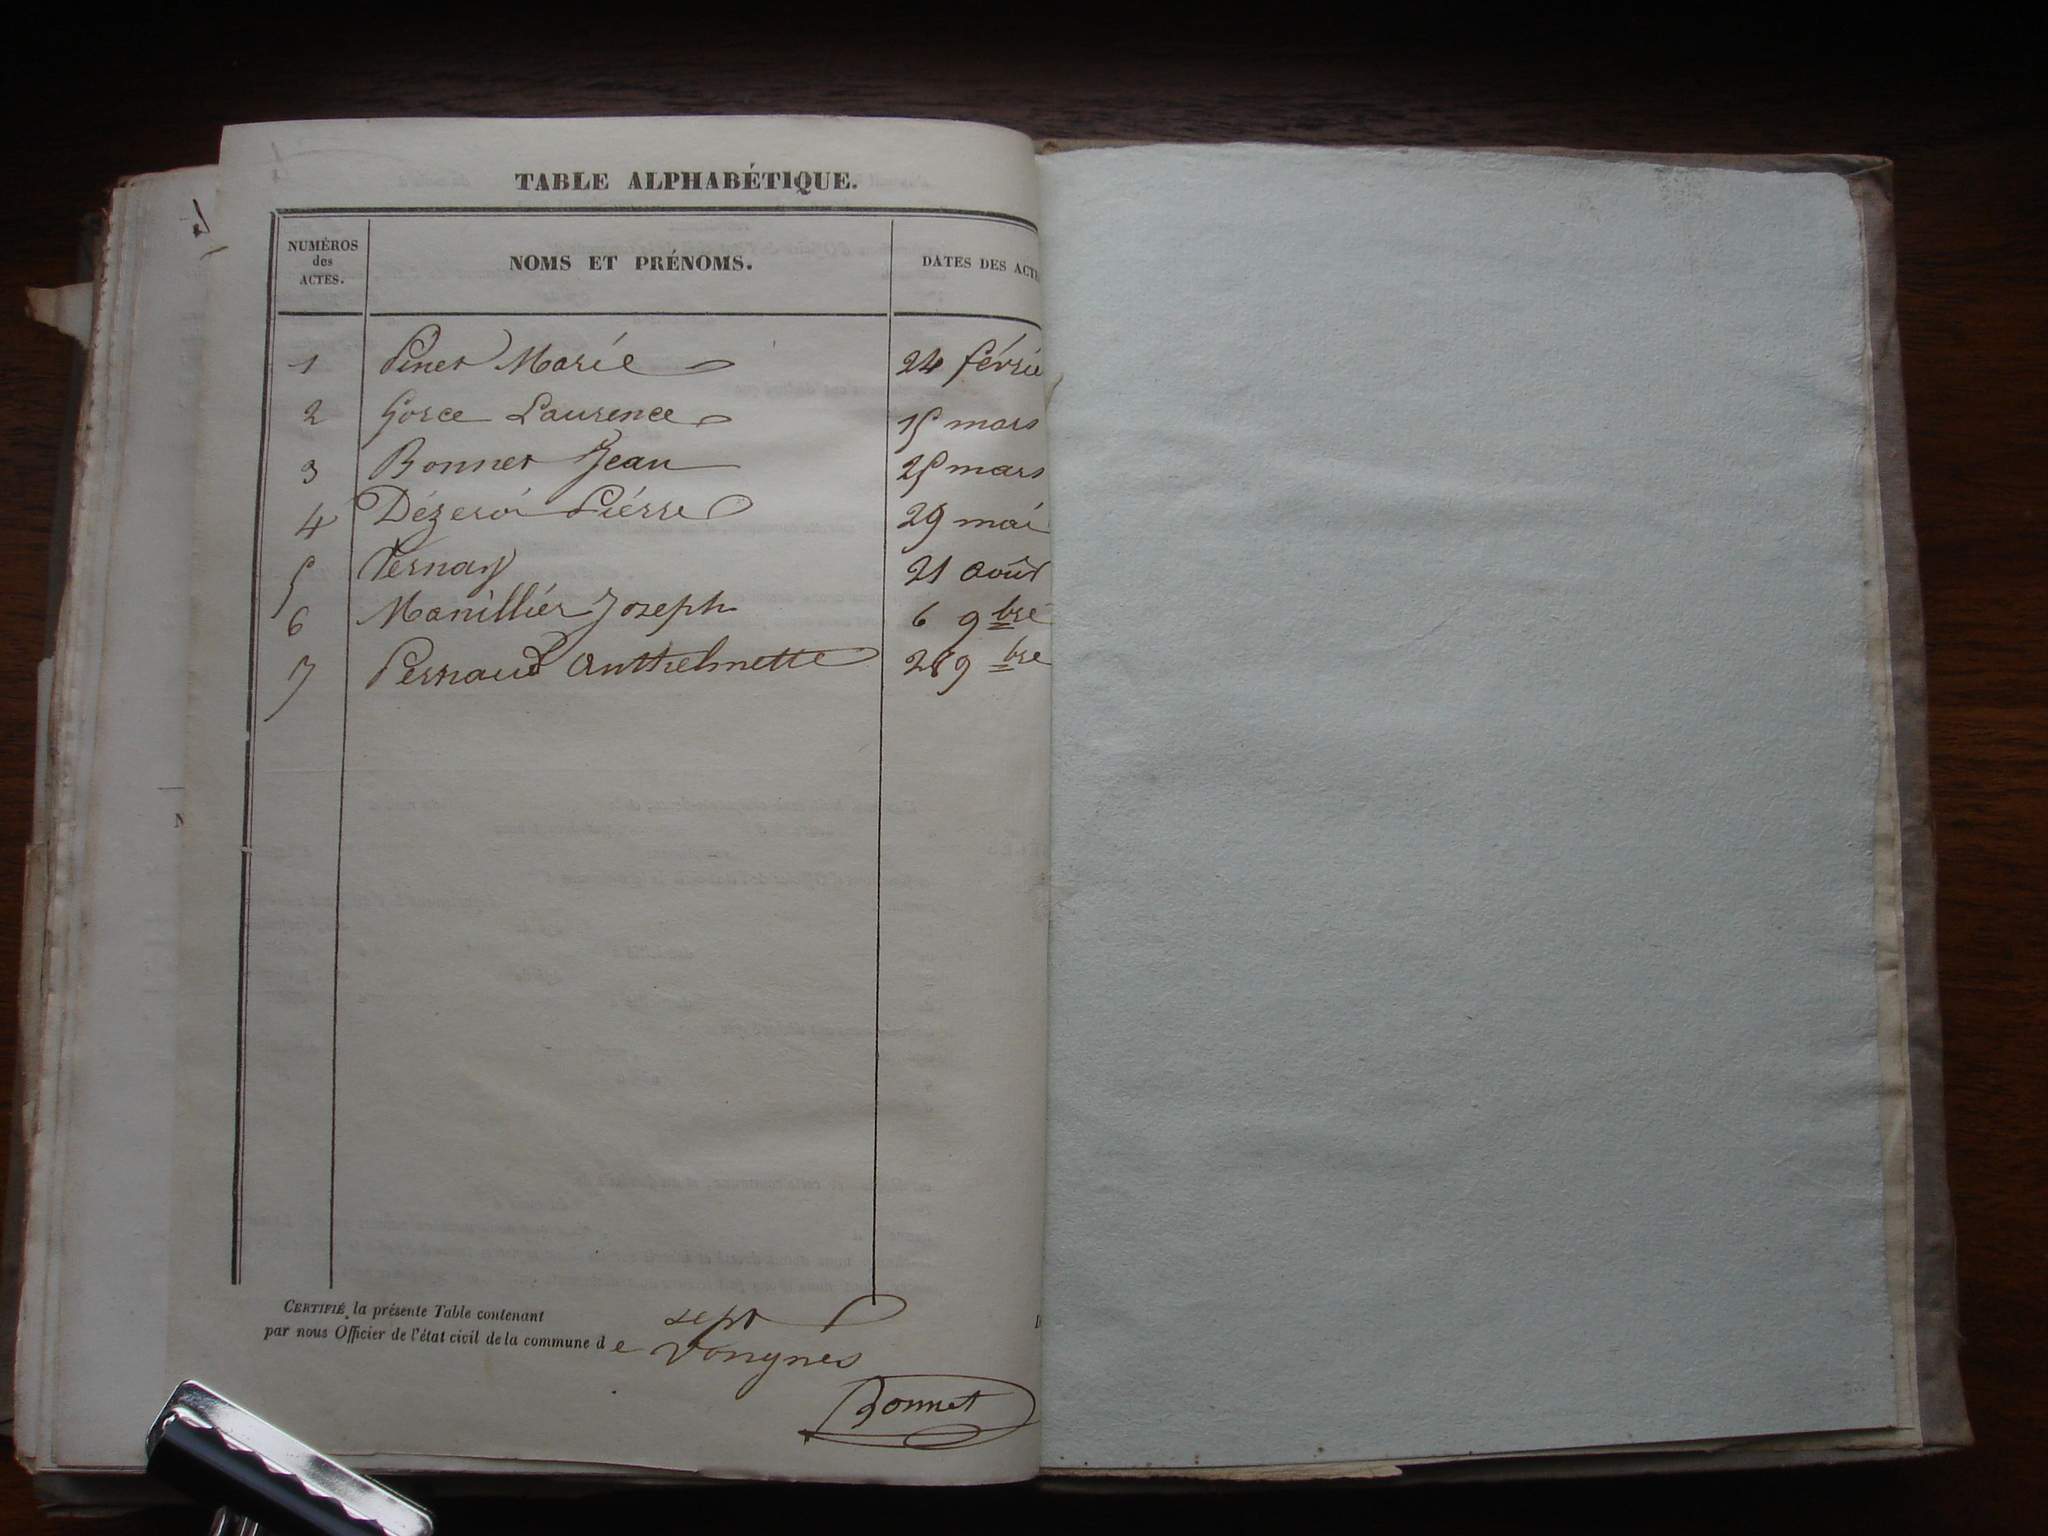 TABLE ALPHABÉTIQUE.
NUMÉROS des ACTES. NOMS ET PRÉNOMS. DATES DES ACTE
1 Pinet Marie 24 févrie
2 Gorce Laurence 15 mars
3 Bonnet Jean 25 mars
4 Dézeroi Piérre 29 mai
5 Vernay 21 août
6 Manillier Joseph 6 9bre
7 Pernaud Anthelmette 9bre
CERTIFIÉ la présente Table contenant sept
par nous Officier de l'état civil de la commune de Vongnes
Bonnet